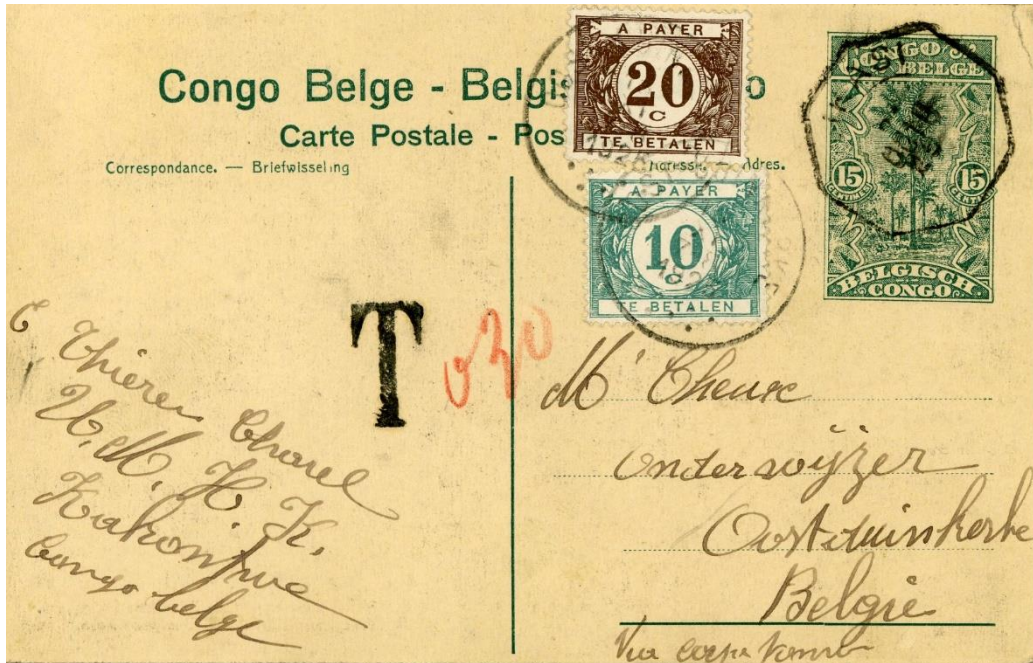 Congo Belge - Belgis o
Carte Postale - Pos
Correspondance. — Briefwisseling
Adresse. — Adres.
A PAYER
20
c
TE BETALEN
A PAYER
10
TE BETALEN
CONGO
BELGE
15
15
BELGISCH
CONGO
T
030
U. M. H. K.
Congo belge
Mr
Onderwijzer
Oostduinkerke
België
Via